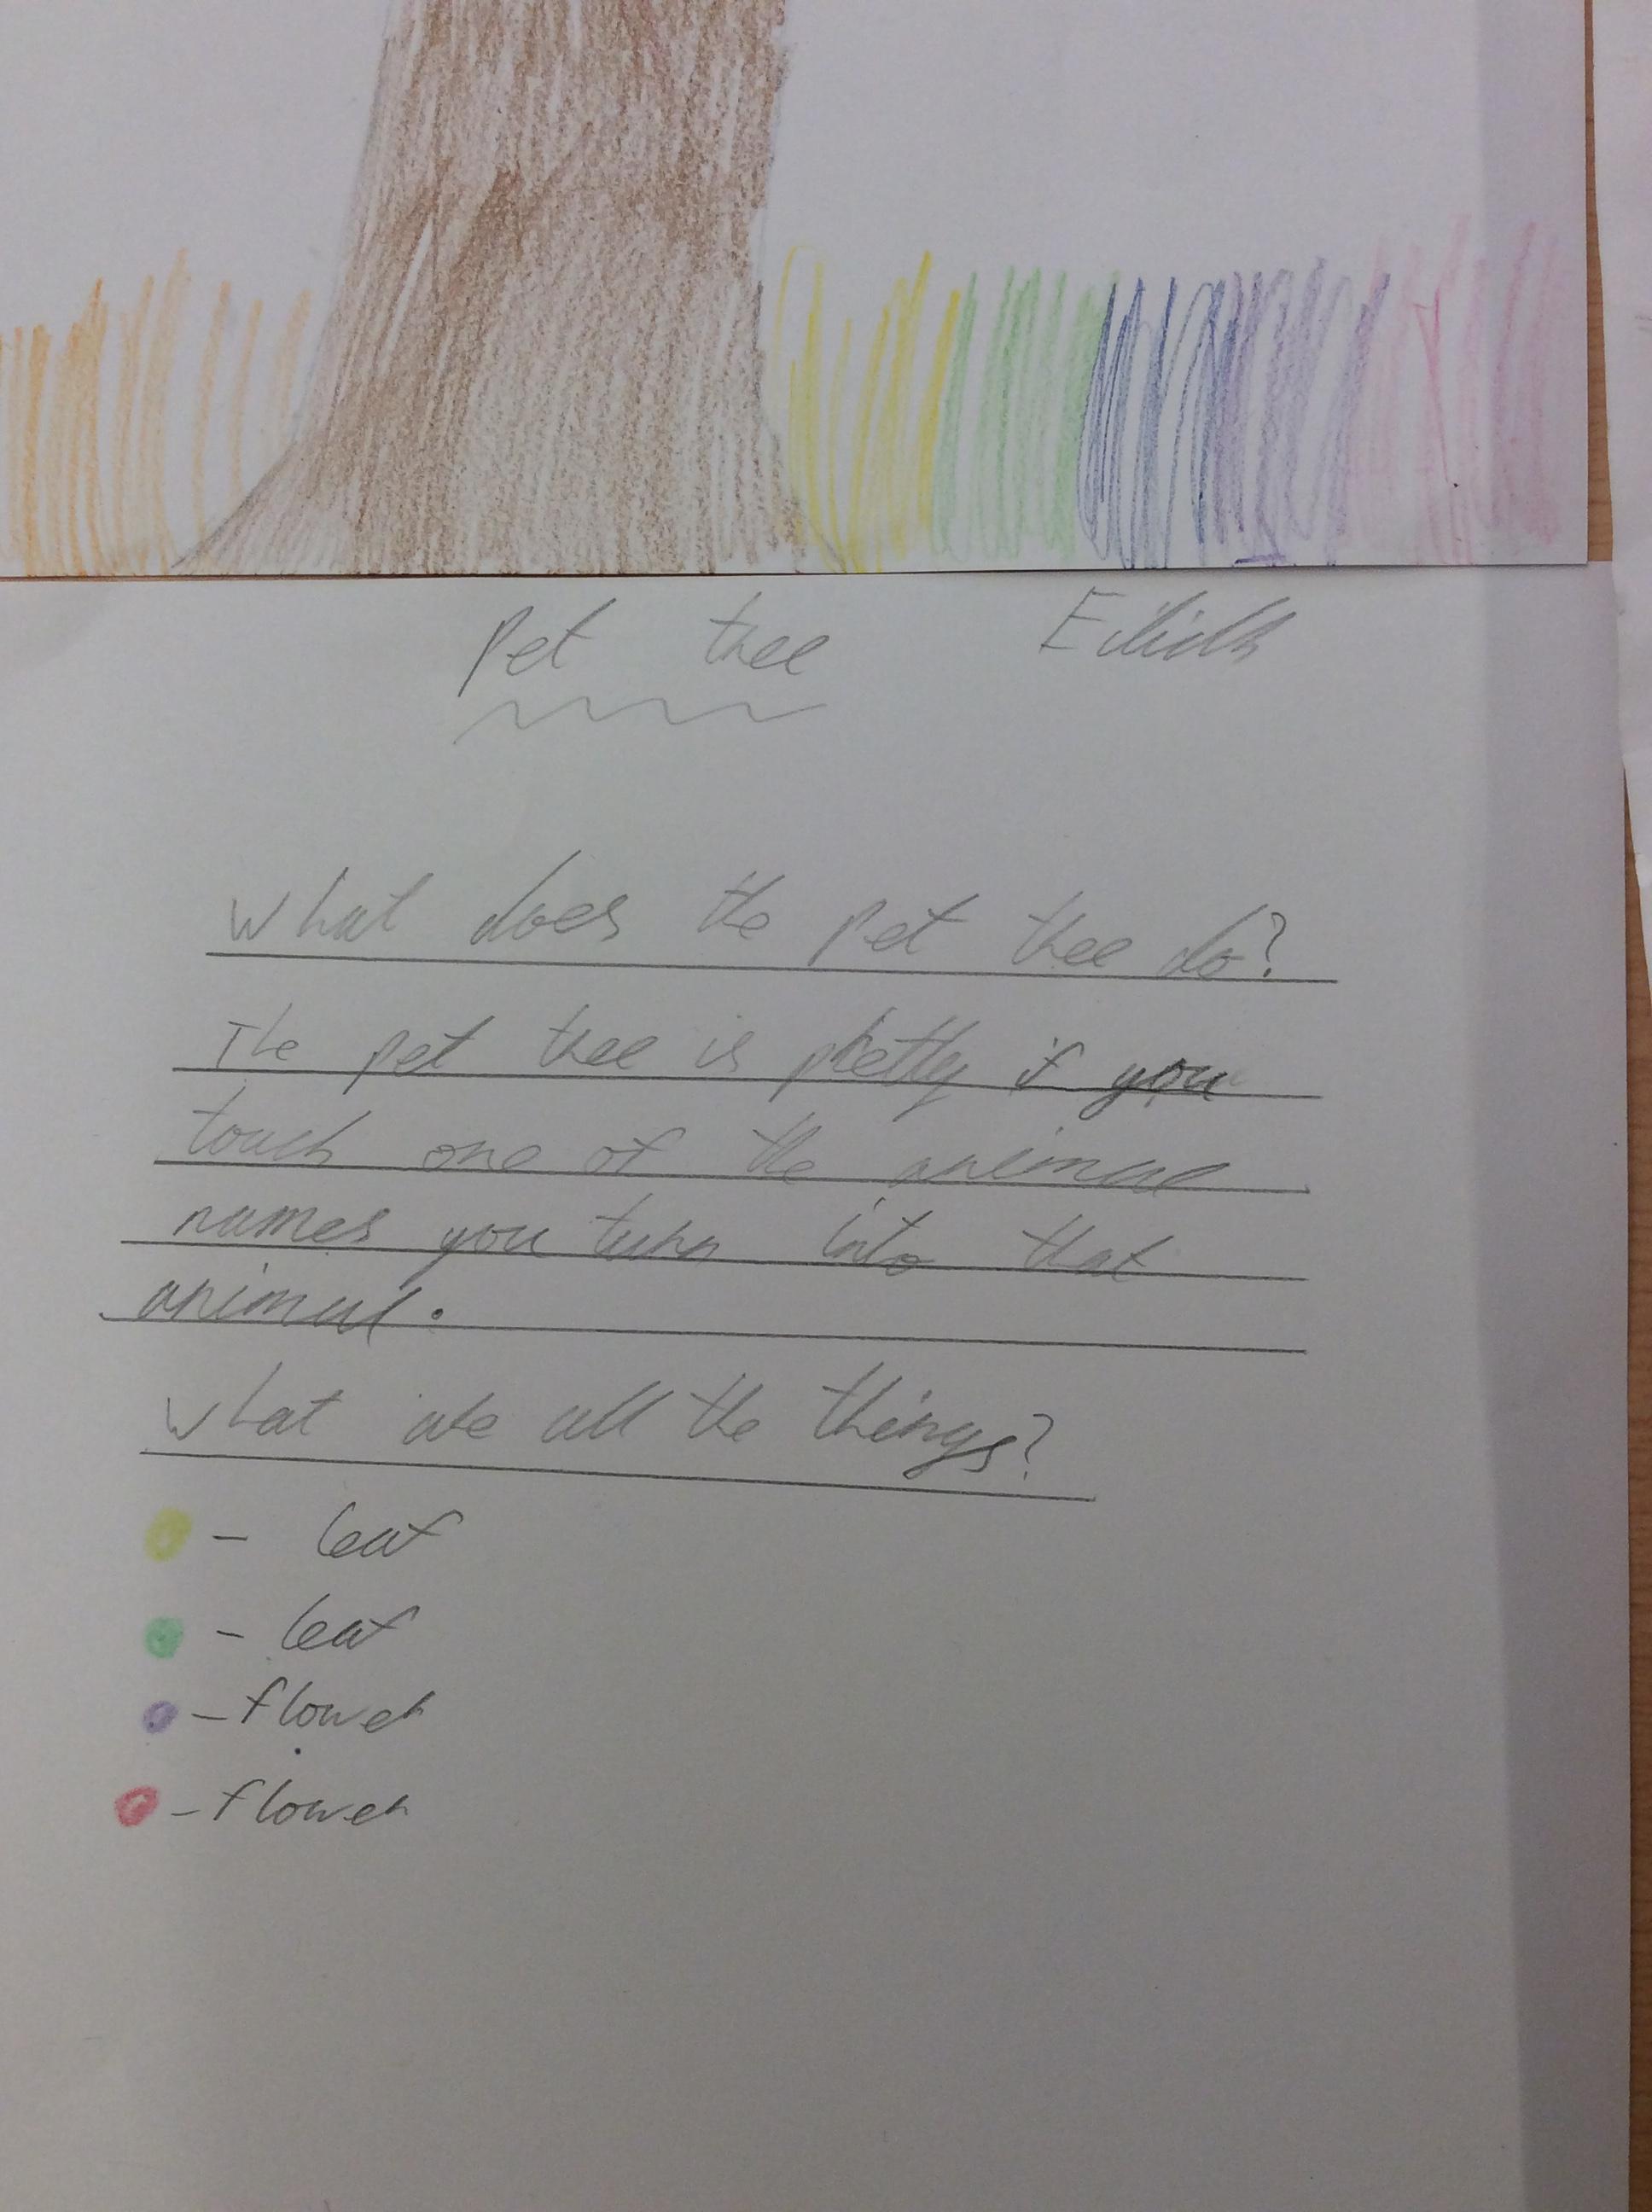 Pet tree Eilidh
What does the pet tree do?
The pet tree is pretty if you
touch one of the animal
names you turn into that
animal.
What are all the things?
- leaf
- leaf
- flower
- flower